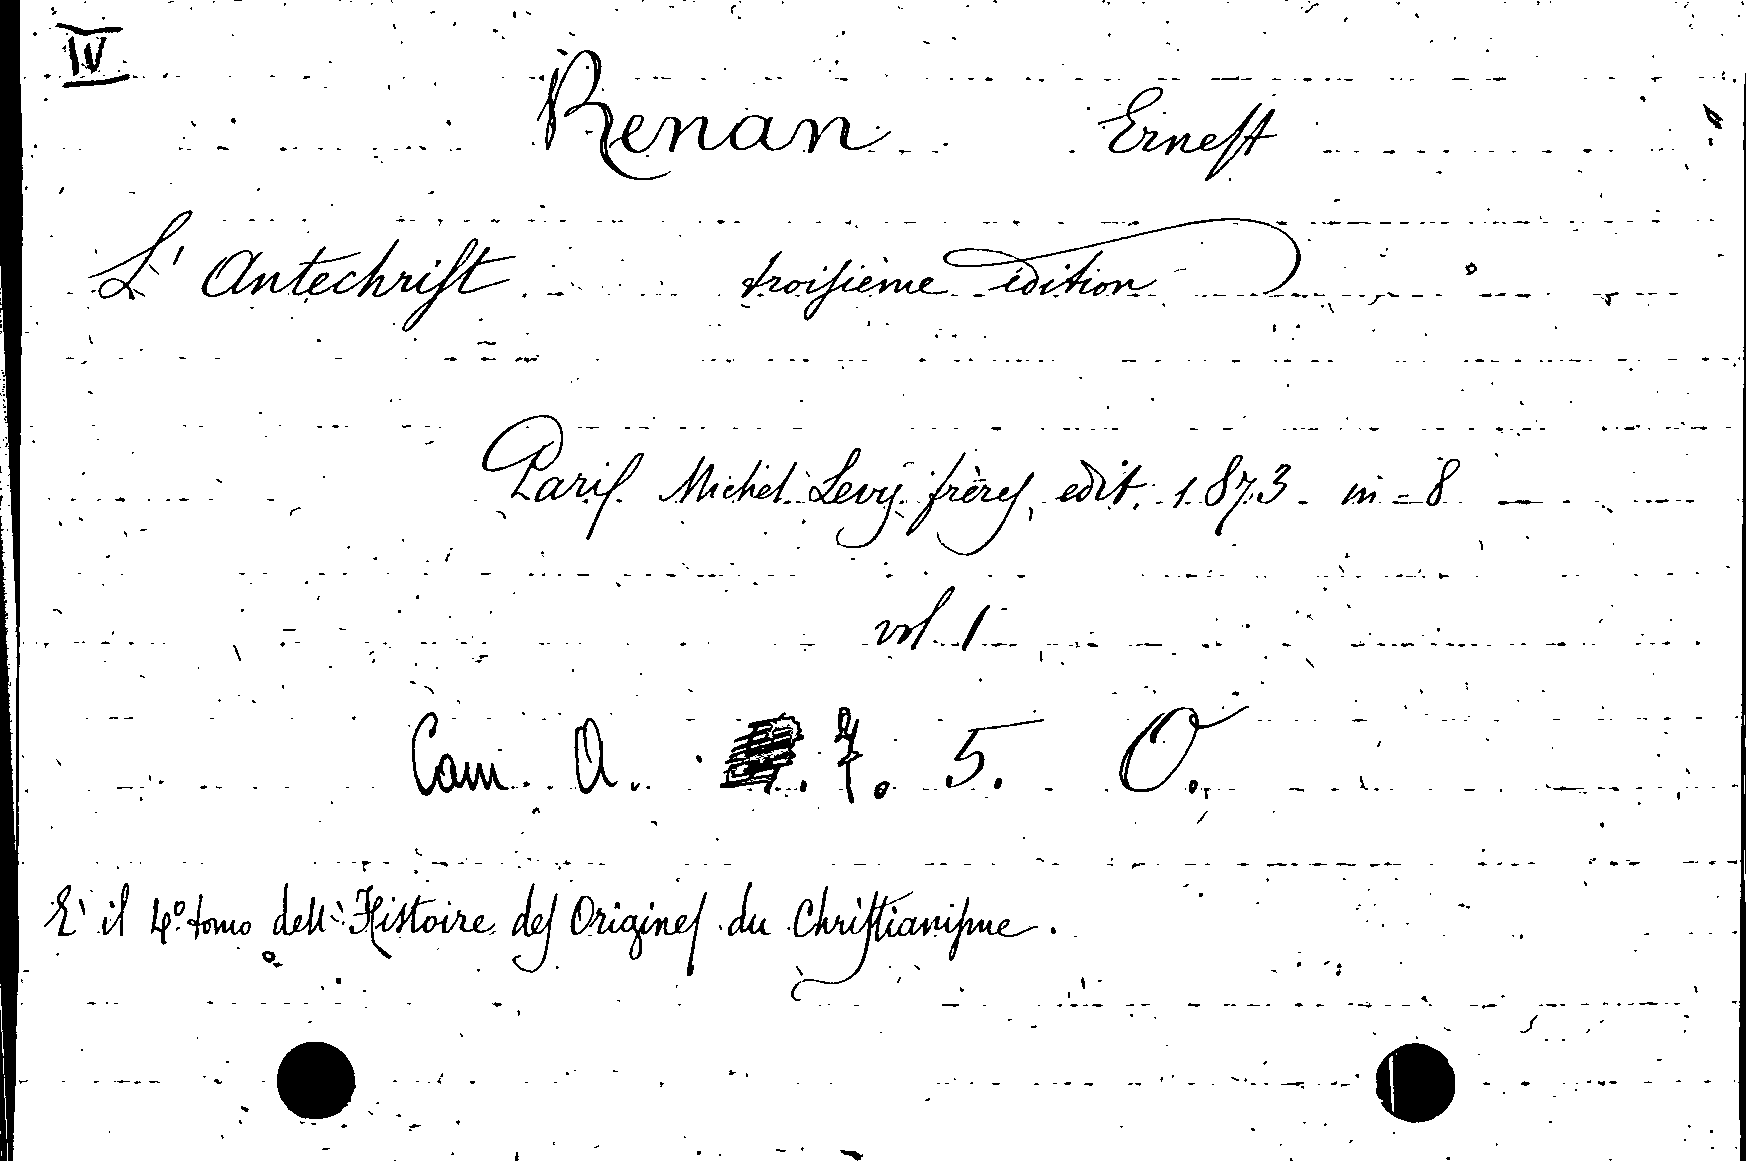 IV
Renan Ernest
L' Antechrist troisième édition
Paris Michel Levy frères, edit. 1873 in-8
vol. 1
Cam. A. 7. 5. O.
E' il 4º tomo dell' Histoire des Origines du Christianisme.